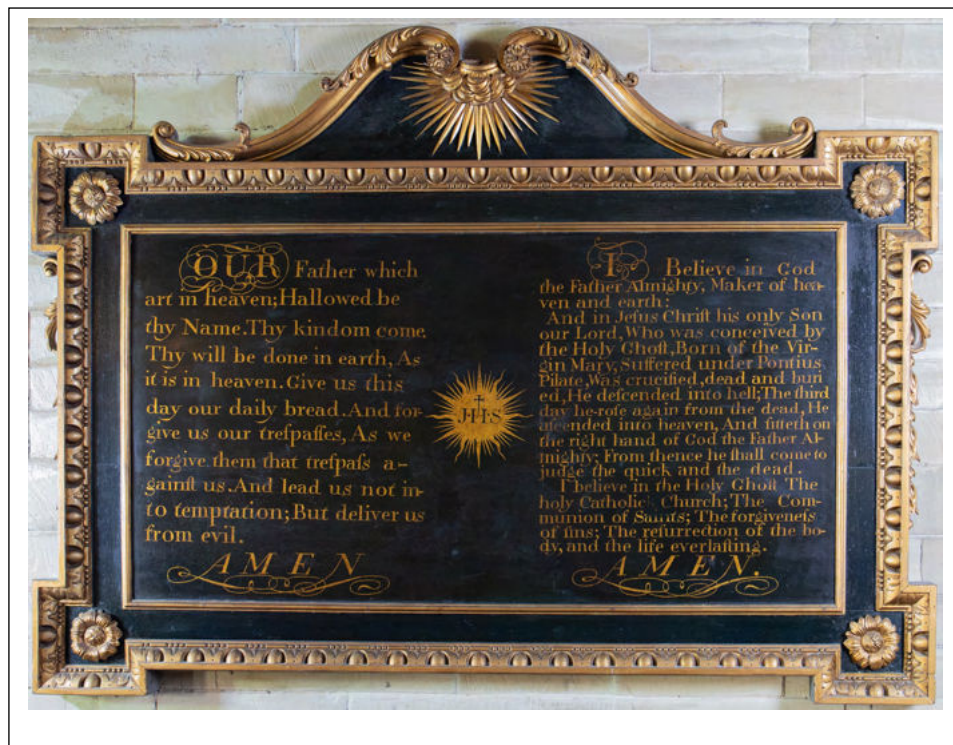 OUR Father which
art in heaven; Hallowed be
thy Name. Thy kindom come.
Thy will be done in earth, As
it is in heaven. Give us this
day our daily bread. And for-
give us our treſpaſſes, As we
forgive them that treſpaſs a-
gainſt us. And lead us not in-
to temptation; But deliver us
from evil.
AMEN
JHS
I Believe in God
the Father Almighty, Maker of hea-
ven and earth:
And in Jeſus Chriſt his only Son
our Lord, Who was conceived by
the Holy Ghoſt, Born of the Vir-
gin Mary, Suffered under Pontius
Pilate, Was crucified, dead and buri
ed, He deſcended into hell; The third
day he roſe again from the dead, He
aſcended into heaven, And ſitteth on
the right hand of God the Father Al-
mighty; From thence he ſhall come to
judge the quick and the dead.
I believe in the Holy Ghoſt The
holy Catholic Church; The Com-
munion of Saints; The forgiveneſs
of ſins; The reſurrection of the bo-
dy, and the life everlaſting.
AMEN.